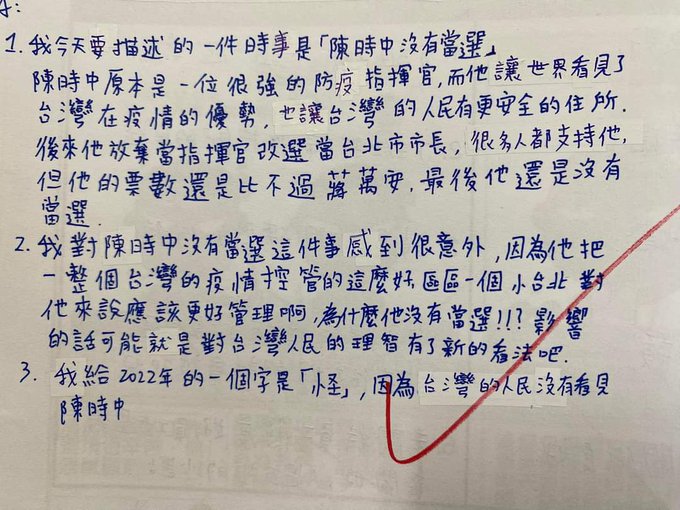 1. 我今天要描述的一件時事是「陳時中沒有當選」
陳時中原本是一位很強的防疫指揮官，而他讓世界看見了
台灣在疫情的優勢，也讓台灣的人民有更安全的住所．
後來他放棄當指揮官改選當台北市市長，很多人都支持他，
但他的票數還是比不過蔣萬安，最後他還是沒有
當選．
2. 我對陳時中沒有當選這件事感到很意外，因為他把
一整個台灣的疫情控管的這麼好，區區一個小台北對
他來說應該更好管理啊，為什麼他沒有當選!!? 影響
的話可能就是對台灣人民的理智有了新的看法吧．
3. 我給2022年的一個字是「怪」，因為台灣的人民沒有看見
陳時中